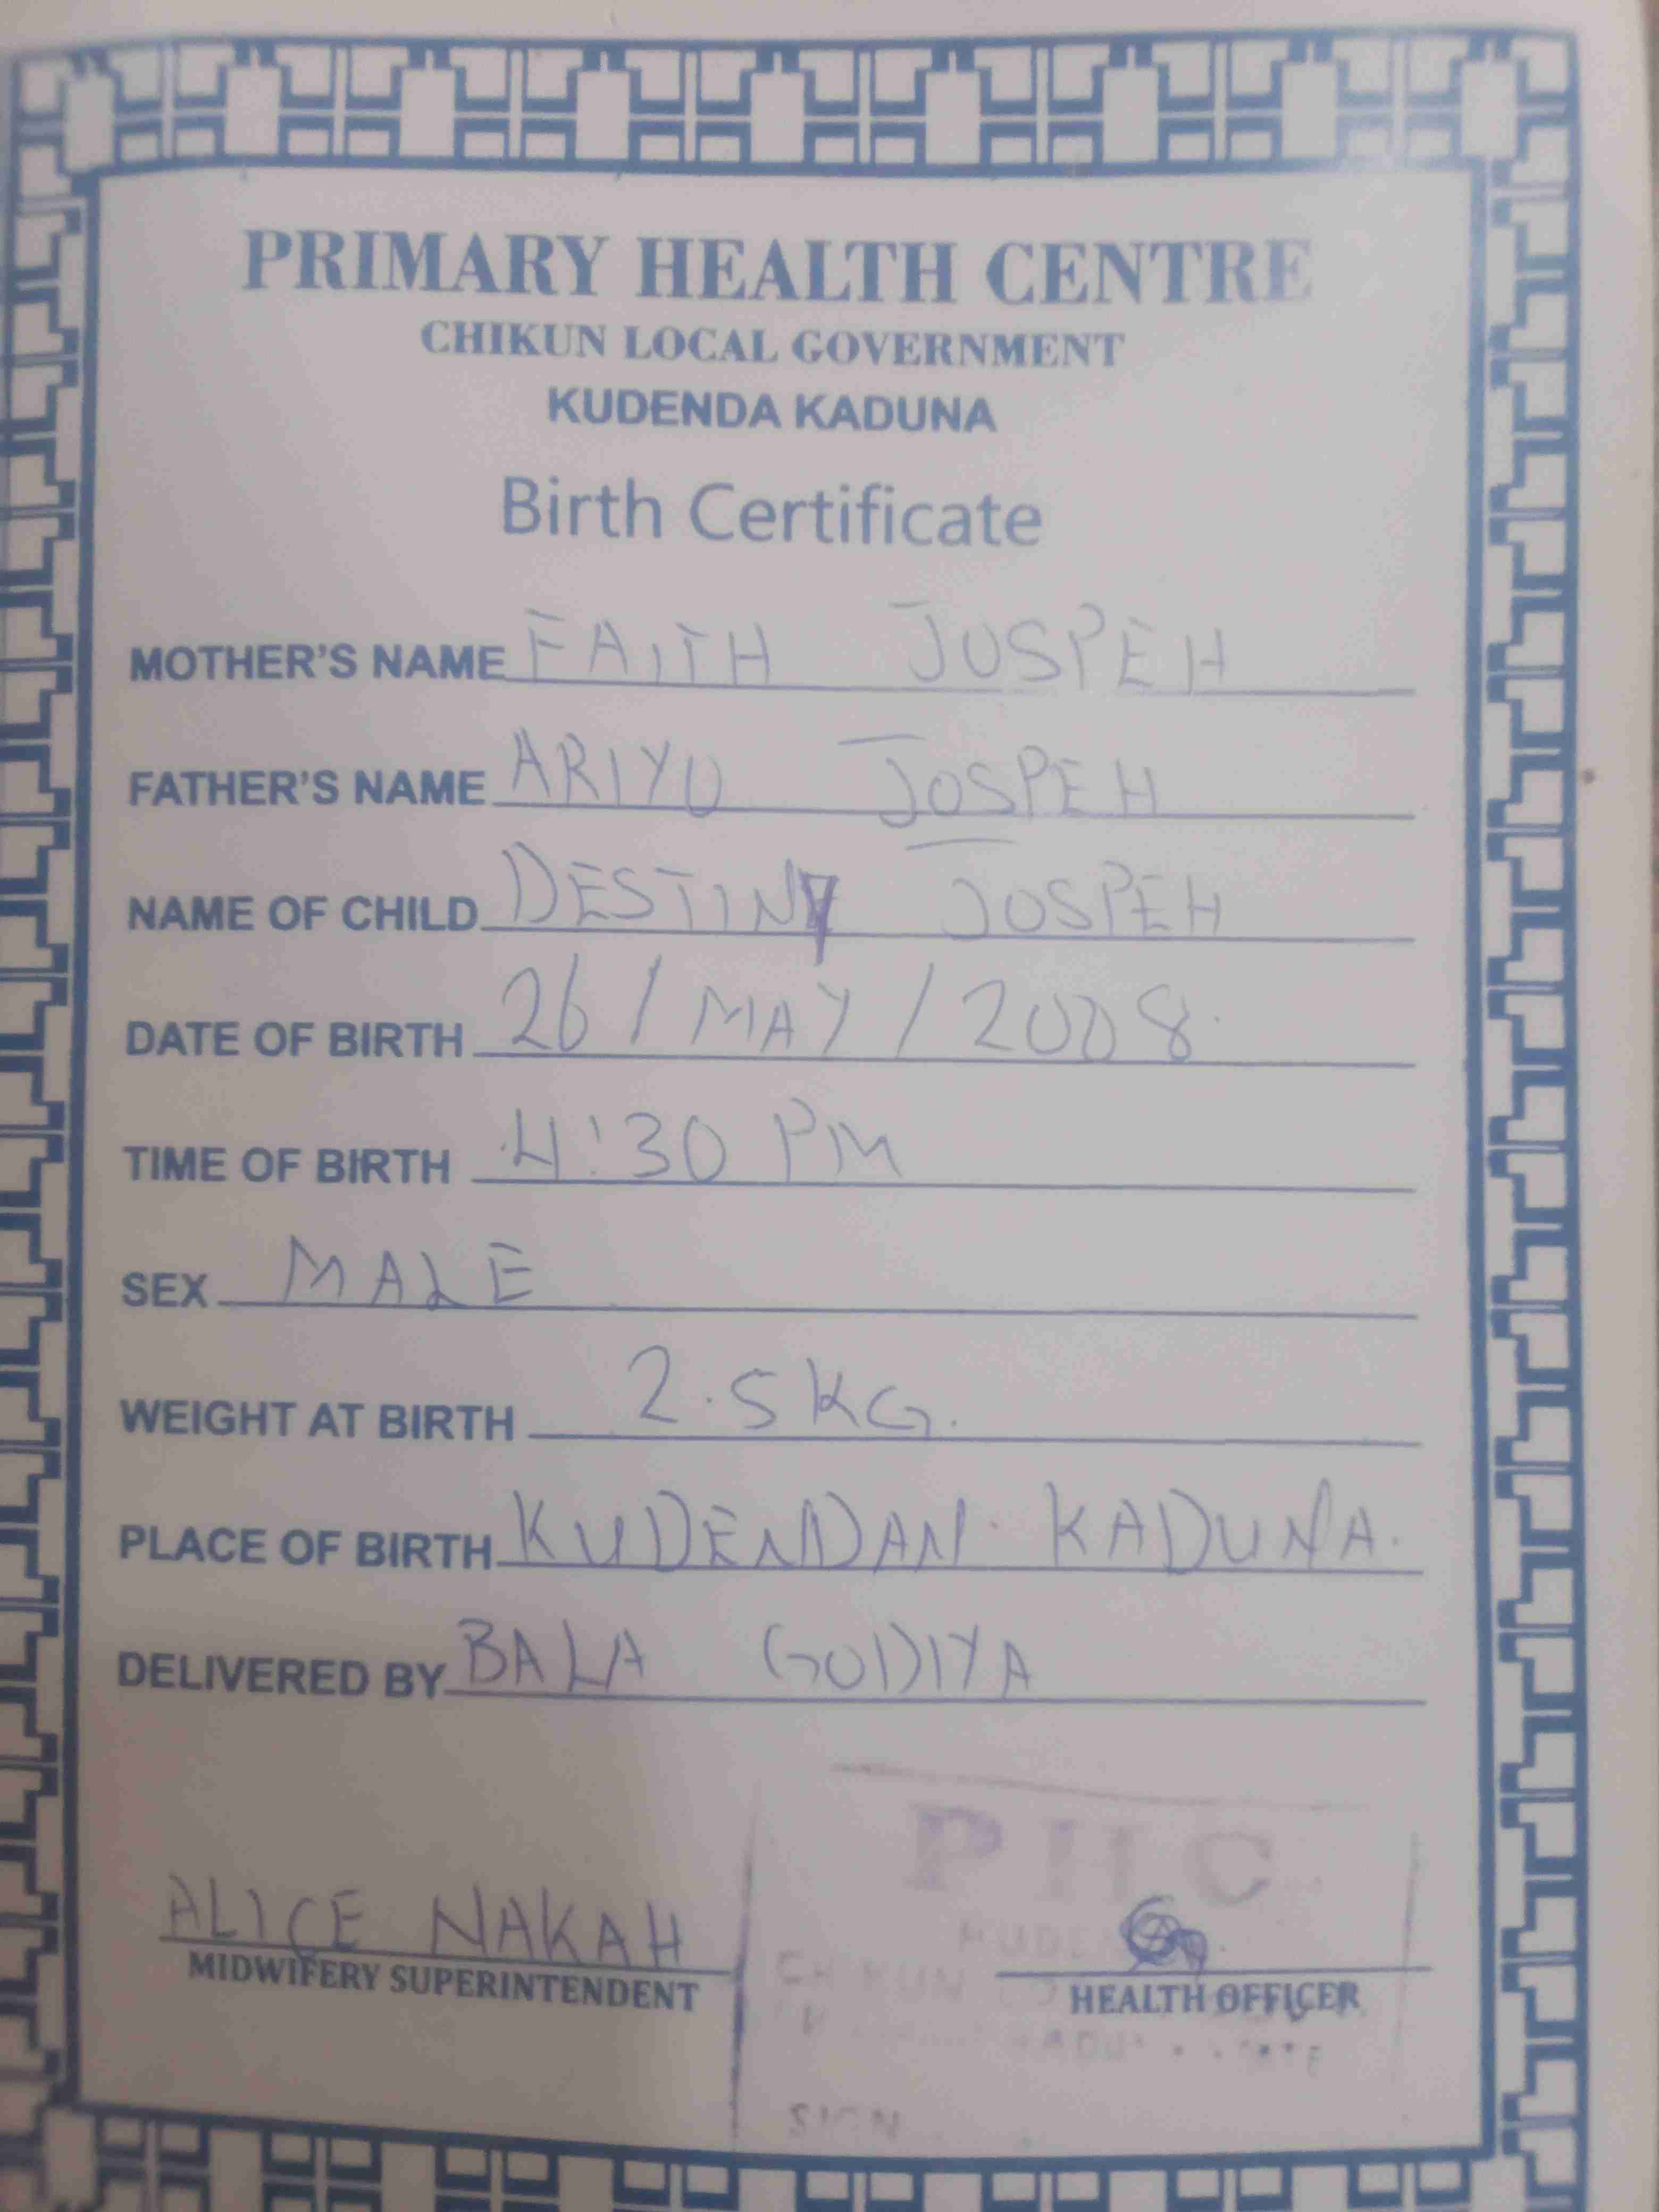 PRIMARY HEALTH CENTRE
CHIKUN LOCAL GOVERNMENT
KUDENDA KADUNA
Birth Certificate
MOTHER'S NAME FAITH JOSPEH
FATHER'S NAME ARIYO JOSPEH
NAME OF CHILD DESTINY JOSPEH
DATE OF BIRTH 26/MAY/2008
TIME OF BIRTH 4:30 PM
SEX MALE
WEIGHT AT BIRTH 2.5KG.
PLACE OF BIRTH KUDENDAN KADUNA.
DELIVERED BY BALA GODIYA
PHC
ALICE NAKAH
MIDWIFERY SUPERINTENDENT
HEALTH OFFICER
SIGN